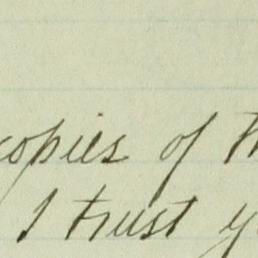 copies of
I trust